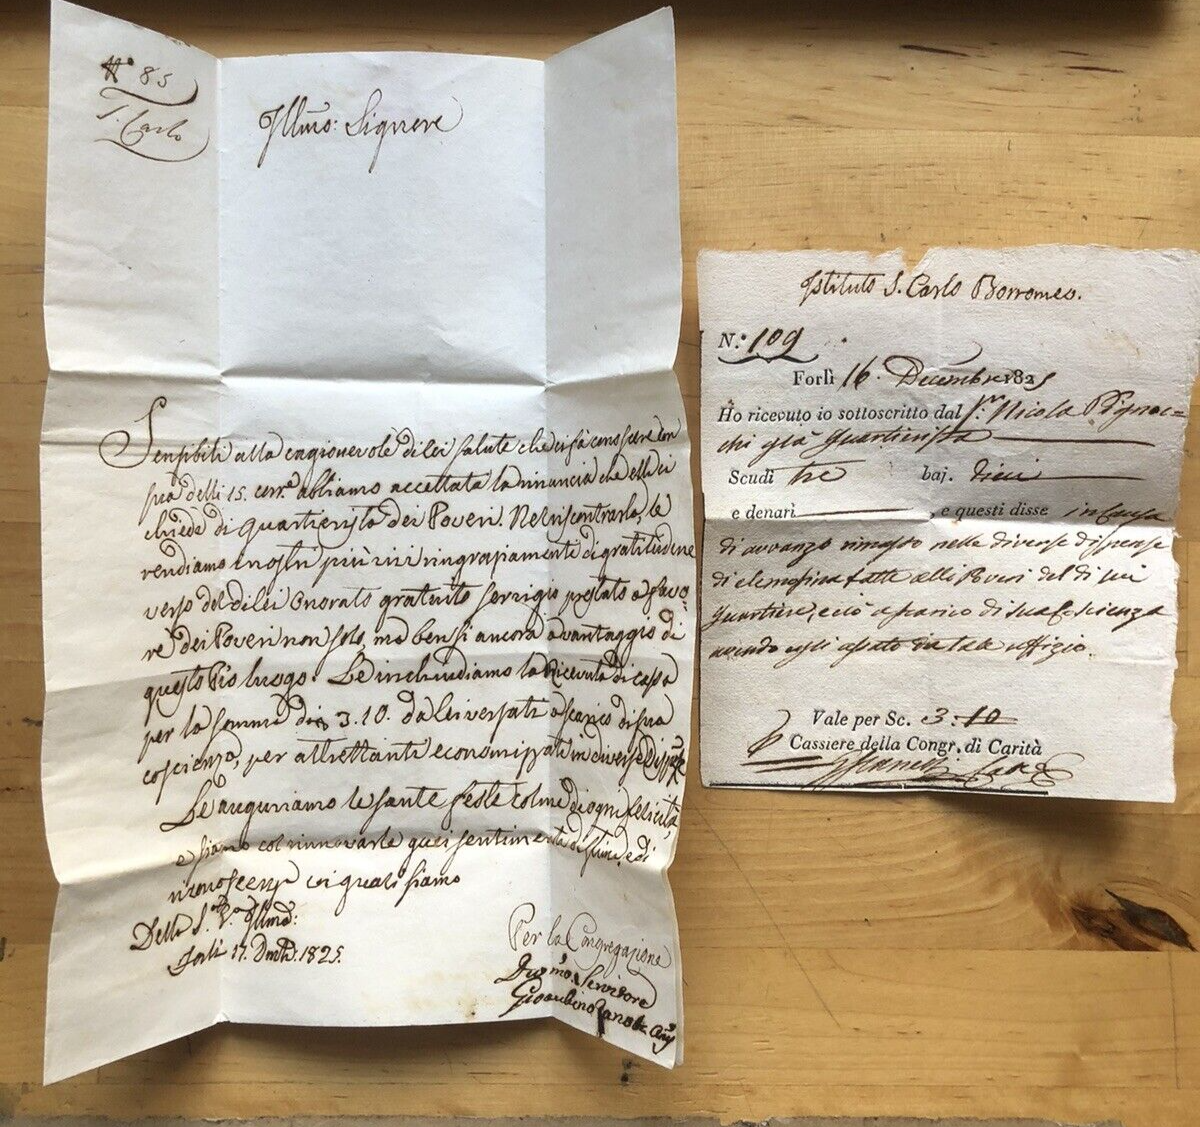 N° 85
S. Carlo
Illmo: Signore
Sensibili alla cagionevole di lei salute che ci fà conoscere con
sua delli 15. corre. abbiamo accettata la rinuncia che ella ci
chiede di Quartierista dei Poveri. Nel riscontrarla, le
rendiamo i nostri più vivi ringraziamenti di gratitudine
verso del di lei onorato gratuito servizio prestato a favo=
re dei Poveri non solo, ma bensì ancora a vantaggio di
questo Pio Luogo. Le inchiudiamo la Ricevuta di cassa
per la somma di 3.10. da lei versati a scarico di sua
coscienza, per altrettanti economizzati in diverse Dispense
Le auguriamo le sante feste colme di ogni felicità,
e siamo col rinnovarle quei sentimenti di stima, e di
riconoscenza coi quali siamo
Della S. V. Illma:
Forlì 17. Dmbe: 1825.
Per la Congregazione
Devmo Servitore
Istituto S. Carlo Borromeo.
N.° 109
Forlì 16. Decembre 1825
Ho ricevuto io sottoscritto dal Sr. Nicola Pignoc=
chi già Quartierista
Scudi tre baj. dieci
e denari , e questi disse in causa
di avvanzo rimasto nelle diverse dispense
di elemosina fatte alli Poveri del di lui
Quartiere, e ciò a scarico di sua coscienza
avendo egli cessato da tale uffizio.
Vale per Sc. 3:10
Cassiere della Congr. di Carità